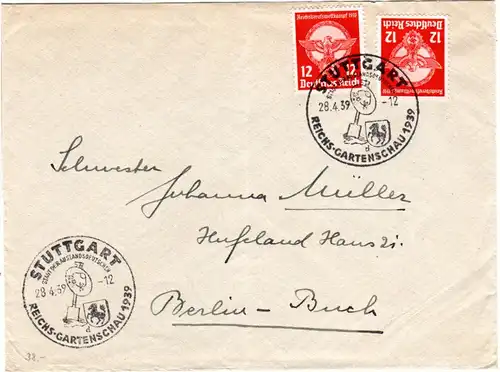 Reichsberufswettkampf 1939
12 12
Deutsches Reich
Reichsberufswettkampf 1939
12 12
Deutsches Reich
STUTTGART
STADT DER AUSLANDSDEUTSCHEN
28.4.39 -12
d
REICHS-GARTENSCHAU 1939
Schwester
Johanna Müller
Hufeland Haus
Berlin-Buch
STUTTGART
STADT DER AUSLANDSDEUTSCHEN
28.4.39 -12
d
REICHS-GARTENSCHAU 1939
38.-